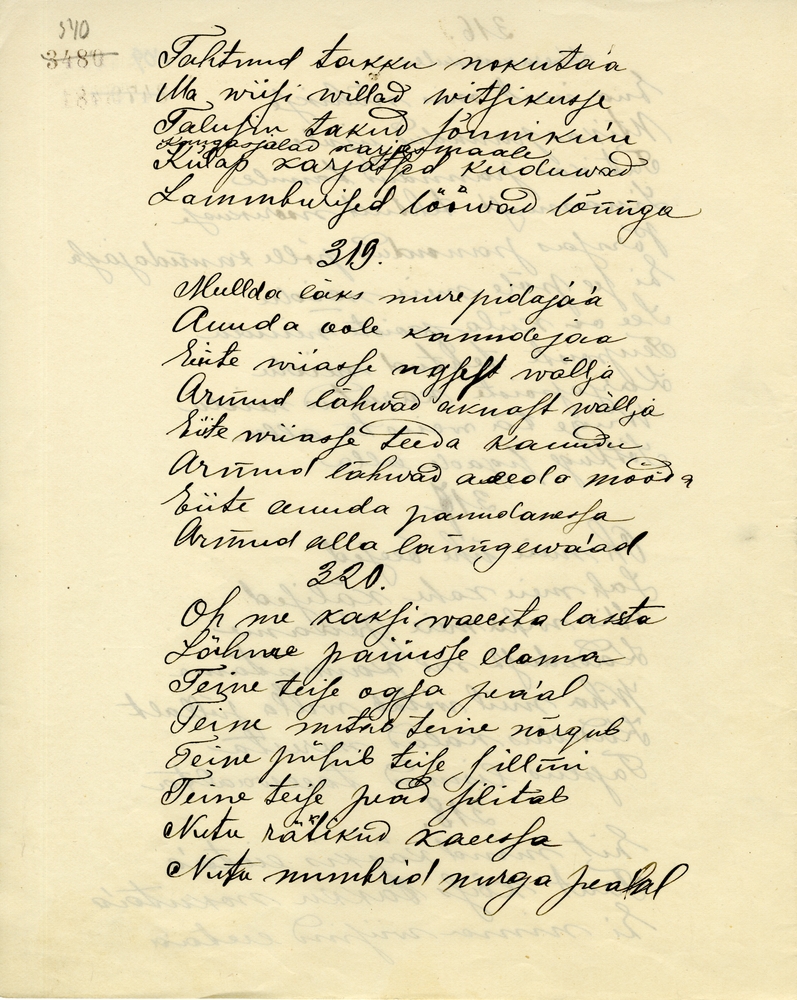 540
3480
Tahtnud takku nokutaa
Ma wiisi willad witsikusse
Talusin takud sõnniku'u
Kangasjalad karjasmaale
Kulap karjatsed kuduwad
Lammburised lööwad lõnnga
319.
Mullda läks mure pidaja'a
Auuda oole kanndejaa
Eiite wiiasse uksest wällja
Armud lähwad aknast wällja
Eiite wiiasse teeda kauudu
Armud lähwad aaeda mööda
Eiite auuda panndanessa
Armud alla lanngewa'ad
320.
Oh me kaksi waeesta lassta
Lähme paiiusse elama
Teine teise ogsa pea'al
Teine nutab teine nõrgub
Teine pühib teise sillmi
Teine teise pead silitab
Nutu rätikud kaeessa
Nutu numbrid nurga pealal